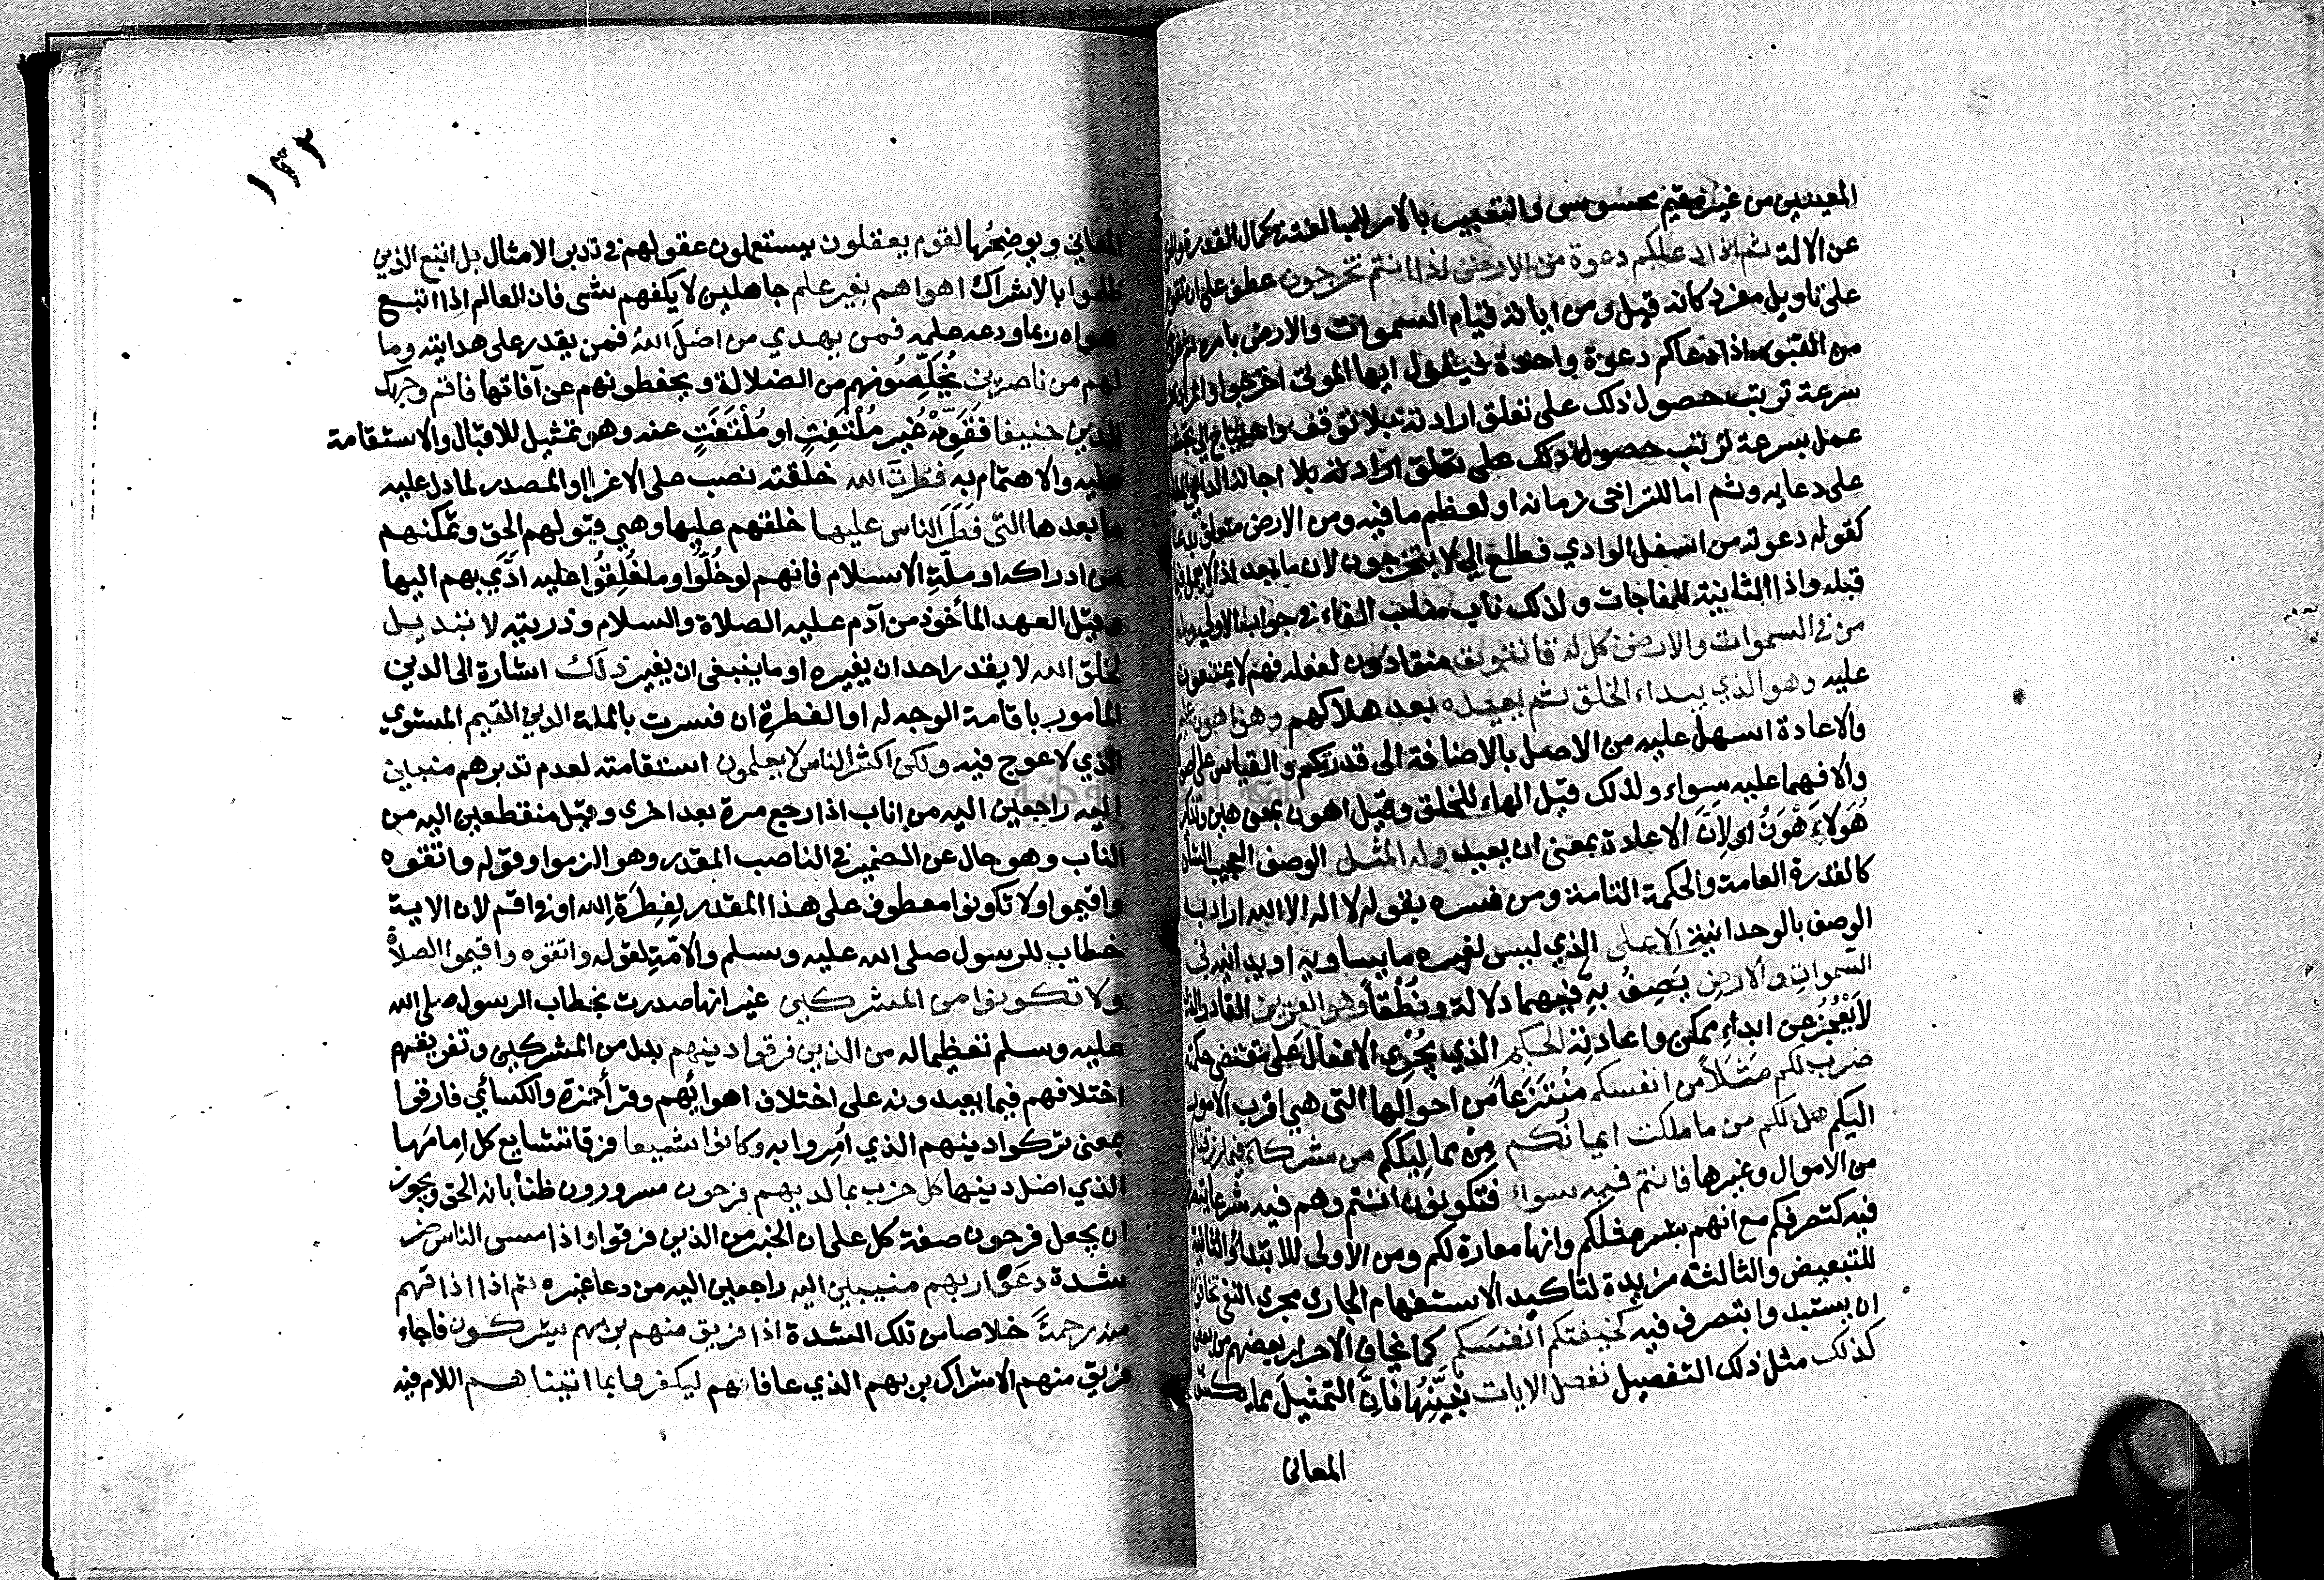 المعينين من غير مقيم محسوس والتعبير بالامر للمبالغة في كمال القدرة والغنى
عن الالة ثم اذا دعاكم دعوة من الارض اذا انتم تخرجون عطف على ان تقوم
على تاويل مفرد كانه قيل ومن اياته قيام السموات والارض بامره ثم
من القبور اذا دعاكم دعوة واحدة فيقول ايها الموتى اخرجوا والمراد
سرعة ترتب حصول ذلك على تعلق ارادته بلا توقف واحتياج الى تجشم
عمل بسرعة ترتب حصول ذلك على تعلق ارادته بلا اجابة الداعي
على دعايه وثم اما للتراخي زمانه او لعظم ما فيه ومن الارض متعلق بدعا
كقوله دعوته من اسفل الوادي فطلع الي لا بتخرجون لان ما بعد اذا لا يعمل فيما
قبله واذا الثانية للمفاجات ولذلك ناب مناب الفاء في جواب الاولى وله
من في السموات والارض كل له قانتون منقادون لفعله فهم لا يمتنعون
عليه وهو الذي يبداء الخلق ثم يعيده بعد هلاكهم وهو اهون عليه
والاعادة اسهل عليه من الاصل بالاضافة الى قدرتكم والقياس على
والا فهما عليه سواء ولذلك قيل الهاء للخلق وقيل اهون بمعنى هين وتذكير
هُوَ لاَءَهْوَنُ او لاِنَّ الاعادة بمعنى ان يعيد وله المثل الوصف العجيب الشان
كالقدرة العامة والحكمة التامة ومن فسره بقوله لا اله الا الله اراد به
الوصف بالوحدانية الاعلى الذي ليس لغيره ما يساويه او يدانيه في
السموات والارض يَصِفُ بهِ فيهما دلالة ونُطْقاً وهو العزيز القادر الذي
لاَيَعْجُزُ عن ابداءِ ممكن واعادتِه الحكيم الذي يُجْرِي الافعالَ على مقتضى حكمته
ضرب لكم مَثَلاً من انفسكم مُنْتَزَعاً من احوالها التي هي اقرب الامور
اليكم هل لكم من ما ملكت ايمانُكم مِن مماليككم من شركاء فيما رزقناكم
من الاموال وغيرها فانتم فيه سواء فتكونون انتم وهم فيه شرعا يتصرفون
فيه كتصرفكم مع انهم بشر مثلكم وانها معارة لكم ومن الاولى للابتداءِ والثانية
للتبعيض والثالثة مزيدة لتاكيد الاستفهام الجاري مجرى النفي تخافونهم
ان يستبد وا بتصرف فيه كخيفتكم انفسَكم كما يخاف الاحرار بعضهم من بعض
كذلك مثل ذلك التفصيل نفصل الايات نُبَيِّنُهَا فَاِنَّ التمثيلَ مما يكشف
المعانى
١٣٢
المعاني ويوضِحُها لقوم يعقلون يستعملون عقولهم في تدبر الامثال بل اتبع الذين
ظلموا بالاشراك اهواهم بغير علم جاهلين لا يكفهم شى فان العالم اِذا اتبع
هواه ربما ودعه علمه فمن يهدي من اضلَ اللهُ فمن يقدر على هدايته وما
لهم من ناصرين يُخَلِّصُونهم من الضلالة ويحفظونهم عن آفاتها فاقم وجهك
للدين حنيفا فَقَوِّمْهُ غَيرِ مُلْتَفِتٍ او مُلْتَفَتٍ عنه وهو تمثيل للاقبال والاستقامة
عليه والاهتمام به فطرتَ الله خلقته نصب على الاغراا والمصدر لما دل عليه
ما بعدها التى فَطَرَ الناس عليها خلقهم عليها وهي قبولهم الحق وتمكنهم
من ادراكه او ملّةِ الاسلام فانهم لو خُلُّوا وما خُلِقُوا عليه ادّي بهم اليها
وقيل العهد المأخوذ من آدم عليه الصلاة والسلام وذريته لا تبديل
لخلق الله لا يقدر احد ان يغيره او ما ينبغى ان يغير ذلَك اشارة الى الدين
المامور باقامة الوجه له او الفطرةِ ان فسرت بالملة الدين القيم المستوي
الذي لا عوج فيه ولكن اكثر الناس لا يعلمون استقامته لعدم تدبرهم منيبين
اليه راجعين اليه من اِناب اذا رجع مرة بعد اخرى وقيل منقطعين اليه من
الناب وهو حال عن الضمير في الناصب المقدر وهو الزموا وقوله واتقوه
واقيموا ولا تكونوا معطوف على هذا المقدر لِفِطرَةِ اِلله او في اقم لان الاية
خطاب للرسول صلى الله عليه وسلم والامّةِ لقوله واتقوه واقيموا الصلاةَ
ولا تكونوا من المشركين غير انها صدرت بخطاب الرسول صلى الله
عليه وسلم تعظيما له من الذين فرقوا دينهم بدل من المشركين وتفريقهم
اختلافهم فيما يعبدونه على اختلاف اهوائهم وقرأ حمزة والكسائي فارقوا
بمعنى تركوا دينهم الذي اُمِروا به وكانوا شيعا فرقا تشايع كل اِمامَها
الذي اضل دينها كل حزب بما لديهم فرحون مسرورون ظنا بانه الحق ويجوز
ان يجعل فرحون صفة كل على ان الخبر من الذين فرقوا واذا مس الناس ضر
شدة دعَوْا ربهم منيبين اليه راجعين اليه من دعا غيره ثم اذا اذاقهم
منه رحمةً خلاصا من تلك الشدة اذا فريق منهم بربهم يشركون فاجاء
فريق منهم الاشراك بربهم الذي عافاهم ليكفروا بما اتيناهم اللام فيه